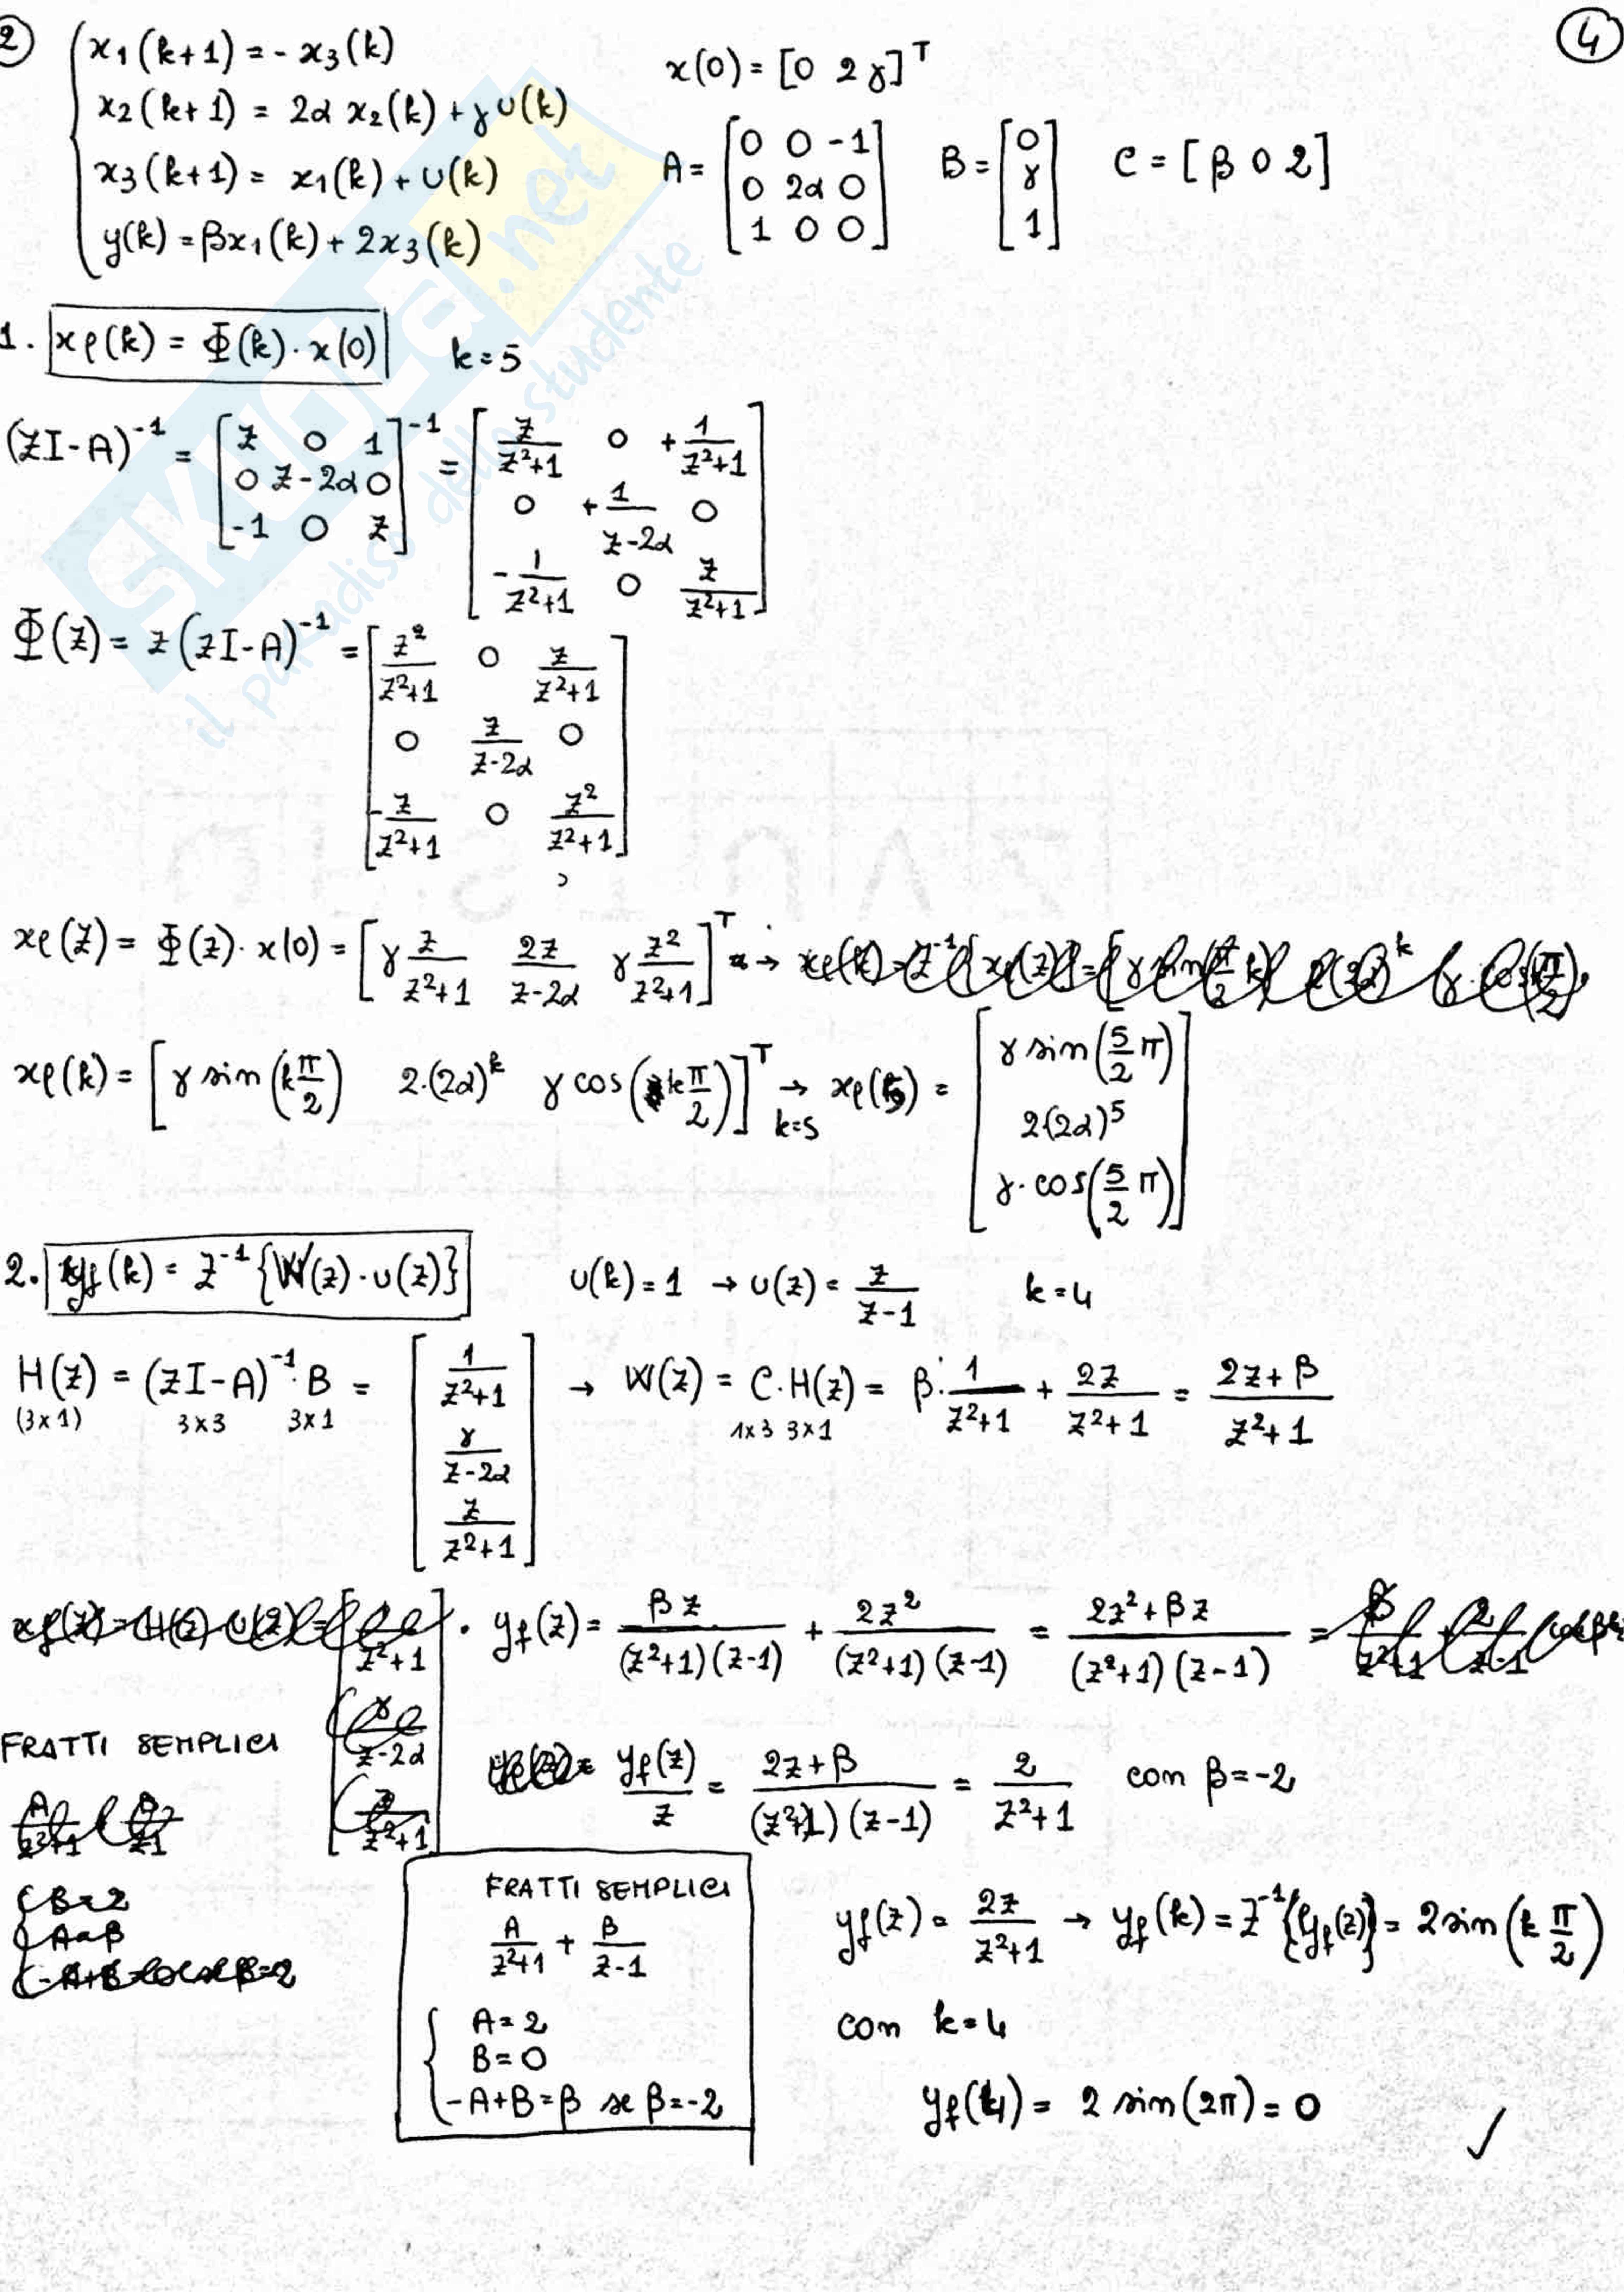 2) x1(k+1) = - x3(k)
x2(k+1) = 2α x2(k) + γ u(k)
x3(k+1) = x1(k) + u(k)
y(k) = βx1(k) + 2x3(k)
x(0) = [0 2 γ]^T
A = [0 0 -1; 0 2α 0; 1 0 0] B = [0; γ; 1] C = [β 0 2]
4
SKUOLA.net
il paradiso dello studente
1. xℓ(k) = Φ(k) · x(0) k=5
(zI-A)^-1 = [z 0 1; 0 z-2α 0; -1 0 z]^-1 = [z/(z²+1) 0 +1/(z²+1); 0 +1/(z-2α) 0; -1/(z²+1) 0 z/(z²+1)]
Φ(z) = z(zI-A)^-1 = [z²/(z²+1) 0 z/(z²+1); 0 z/(z-2α) 0; -z/(z²+1) 0 z²/(z²+1)]
xℓ(z) = Φ(z) · x(0) = [γ z/(z²+1) 2z/(z-2α) γ z²/(z²+1)]^T →
xℓ(k) = [γ sin(k π/2) 2·(2α)^k γ cos(k π/2)]^T → k=5 xℓ(5) = [γ sin(5/2 π); 2(2α)^5; γ·cos(5/2 π)]
2. yf(k) = Z^-1{W(z)·u(z)} u(k) = 1 → u(z) = z/(z-1) k=4
H(z) = (zI-A)^-1 · B = [1/(z²+1); γ/(z-2α); z/(z²+1)] → W(z) = C·H(z) = β · 1/(z²+1) + 2z/(z²+1) = (2z+β)/(z²+1)
(3x1) 3x3 3x1 1x3 3x1
yf(z) = βz/((z²+1)(z-1)) + 2z²/((z²+1)(z-1)) = (2z²+βz)/((z²+1)(z-1))
FRATTI SEMPLICI
yf(z)/z = (2z+β)/((z²+1)(z-1)) = 2/(z²+1) con β=-2
FRATTI SEMPLICI
A/(z²+1) + B/(z-1)
A=2
B=0
-A+B=β se β=-2
yf(z) = 2z/(z²+1) → yf(k) = Z^-1{yf(z)} = 2 sin(k π/2)
con k=4
yf(4) = 2 sin(2π) = 0 ✓